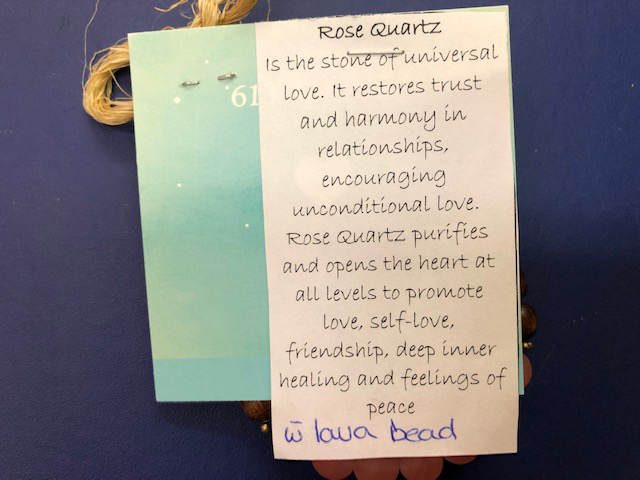 Rose Quartz
Is the stone of universal
love. It restores trust
and harmony in
relationships,
encouraging
unconditional love.
Rose Quartz purifies
and opens the heart at
all levels to promote
love, self-love,
friendship, deep inner
healing and feelings of
peace
w̄ lava bead
61